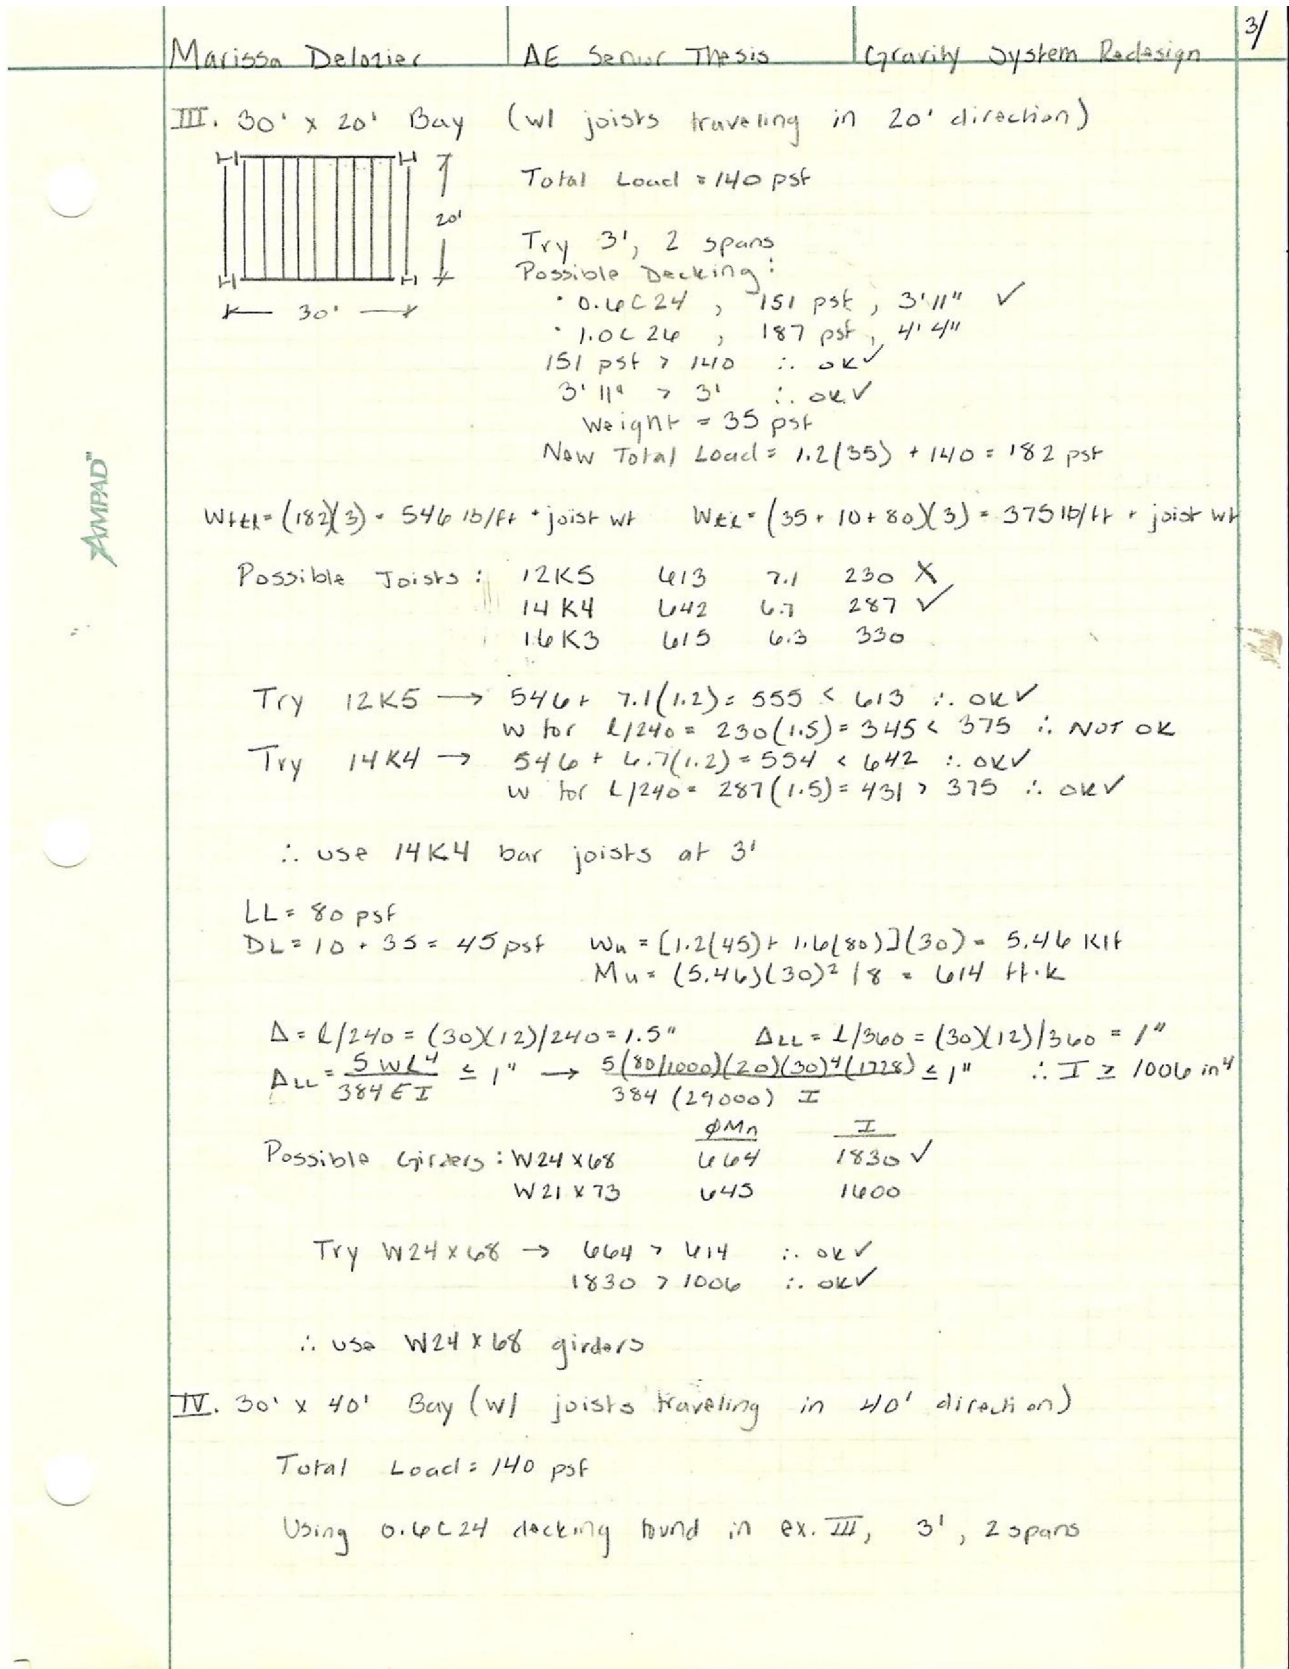 3/
Marissa Delozier AE Senior Thesis Gravity System Redesign
III. 30' x 20' Bay (w/ joists traveling in 20' direction)
Total Load = 140 psf
20'
30'
Try 3', 2 spans
Possible Decking:
• 0.6C24, 151 psf, 3'11" ✓
• 1.0C26, 187 psf, 4'4"
151 psf > 140 ∴ ok ✓
3'11" > 3' ∴ ok ✓
Weight = 35 psf
New Total Load = 1.2(35) + 140 = 182 psf
AMPAD™
Wttl = (182)(3) = 546 lb/ft + joist wt Wtl = (35 + 10 + 80)(3) = 375 lb/ft + joist wt
Possible Joists: 12K5 613 7.1 230 X
14K4 642 6.7 287 ✓
16K3 615 6.3 330
Try 12K5 → 546 + 7.1(1.2) = 555 < 613 ∴ ok ✓
w for l/240 = 230(1.5) = 345 < 375 ∴ NOT OK
Try 14K4 → 546 + 6.7(1.2) = 554 < 642 ∴ ok ✓
w for l/240 = 287(1.5) = 431 > 375 ∴ ok ✓
∴ use 14K4 bar joists at 3'
LL = 80 psf
DL = 10 + 35 = 45 psf Wu = [1.2(45) + 1.6(80)](30) = 5.46 klf
Mu = (5.46)(30)²/8 = 614 ft·k
Δ = l/240 = (30)(12)/240 = 1.5" ΔLL = l/360 = (30)(12)/360 = 1"
ΔLL = 5wl⁴/384EI ≤ 1" → 5(80/1000)(20)(30)⁴(1728)/384(29000) I ≤ 1" ∴ I ≥ 1006 in⁴
φMn I
Possible Girders: W24x68 664 1830 ✓
W21x73 645 1600
Try W24x68 → 664 > 614 ∴ ok ✓
1830 > 1006 ∴ ok ✓
∴ use W24x68 girders
IV. 30' x 40' Bay (w/ joists traveling in 40' direction)
Total Load = 140 psf
Using 0.6C24 decking found in ex. III, 3', 2 spans